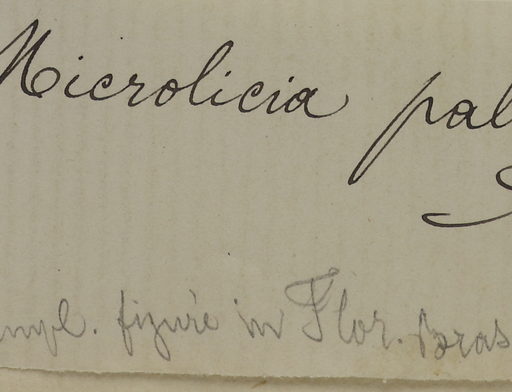 Microlicia pal
mpl. figuré in Flor. Bras